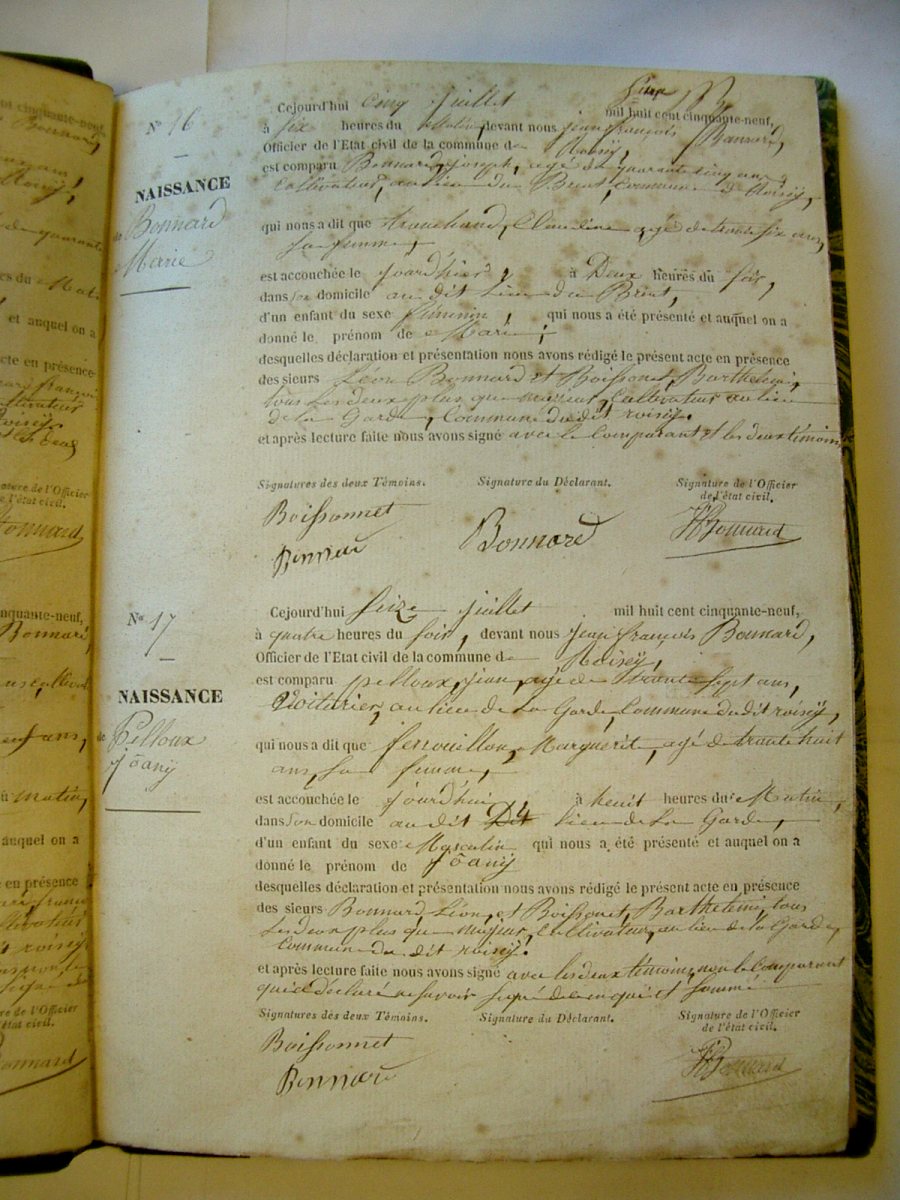 ot cinquante-neuf,
Bonnard,
Roisey,
de quarante
es du Matin
et auquel on a
acte en présence
françois
cultivateur
Roisey
ature de l'Officier
e l'état civil.
Bonnard
nquante-neuf,
Bonnard,
neuf ans,
u matin,
auquel on a
e en présence
françois
roisey
re de l'Officier
état civil.
Bonnard
Cejourd'hui cinq juillet mil huit cent cinquante-neuf,
No 16
à six heures du Matin, devant nous jean françois Bonnard,
Officier de l'Etat civil de la commune de Roisey,
est comparu Bonnard, joseph, agé de quarante cinq ans,
NAISSANCE
Cultivateur, au lieu du Briat, Commune de Roisey,
de Bonnard
Marie
qui nous a dit que Claudine agé de trente six ans,
sa femme,
est accouchée le jourd'hier, à Deux heures du soir,
dans son domicile au dit Lieu du Briat,
d'un enfant du sexe féminin, qui nous a été présenté et auquel on a
donné le prénom de Marie,
desquelles déclaration et présentation nous avons rédigé le présent acte en présence
des sieurs Léon Bonnard et Boissonet, Barthelemi,
tous Les deux plus que majeur, Cultivateur au lieu
de la Garde, Commune du dit roisey.
et après lecture faite nous avons signé avec le Comparant et les deux témoins
Signatures des deux Témoins. Signature du Déclarant. Signature de l'Officier
de l'état civil.
Boissonnet
Bonnard Bonnard Bonnard
Cejourd'hui seize juillet mil huit cent cinquante-neuf,
No 17
à quatre heures du soir, devant nous Jean françois Bonnard,
Officier de l'Etat civil de la commune de Roisey,
est comparu pelloux, jean, agé de trante sept ans,
NAISSANCE
Voiturier, au lieu de La Garde, Commune du dit roisey,
de Pelloux
Jôany
qui nous a dit que fenouillou, Marguerite, agé de trante huit
ans, sa femme,
est accouchée le jourd'hui à heuit heures du Matin,
dans son domicile au dit Dit lieu de La Garde,
d'un enfant du sexe Masculin qui nous a été présenté et auquel on a
donné le prénom de Jôany
desquelles déclaration et présentation nous avons rédigé le présent acte en présence
des sieurs Bonnard Léon, et Boissonet, Barthelemi, tous
Les deux plus que majeur, Cultivateur, au lieu de La Garde,
Commune du dit roisey.
et après lecture faite nous avons signé avec les deux témoins, non le Comparant
qui a déclaré ne savoir signé de ce enqui et sommé
Signatures des deux Témoins. Signature du Déclarant. Signature de l'Officier
de l'état civil.
Boissonnet
Bonnard Bonnard